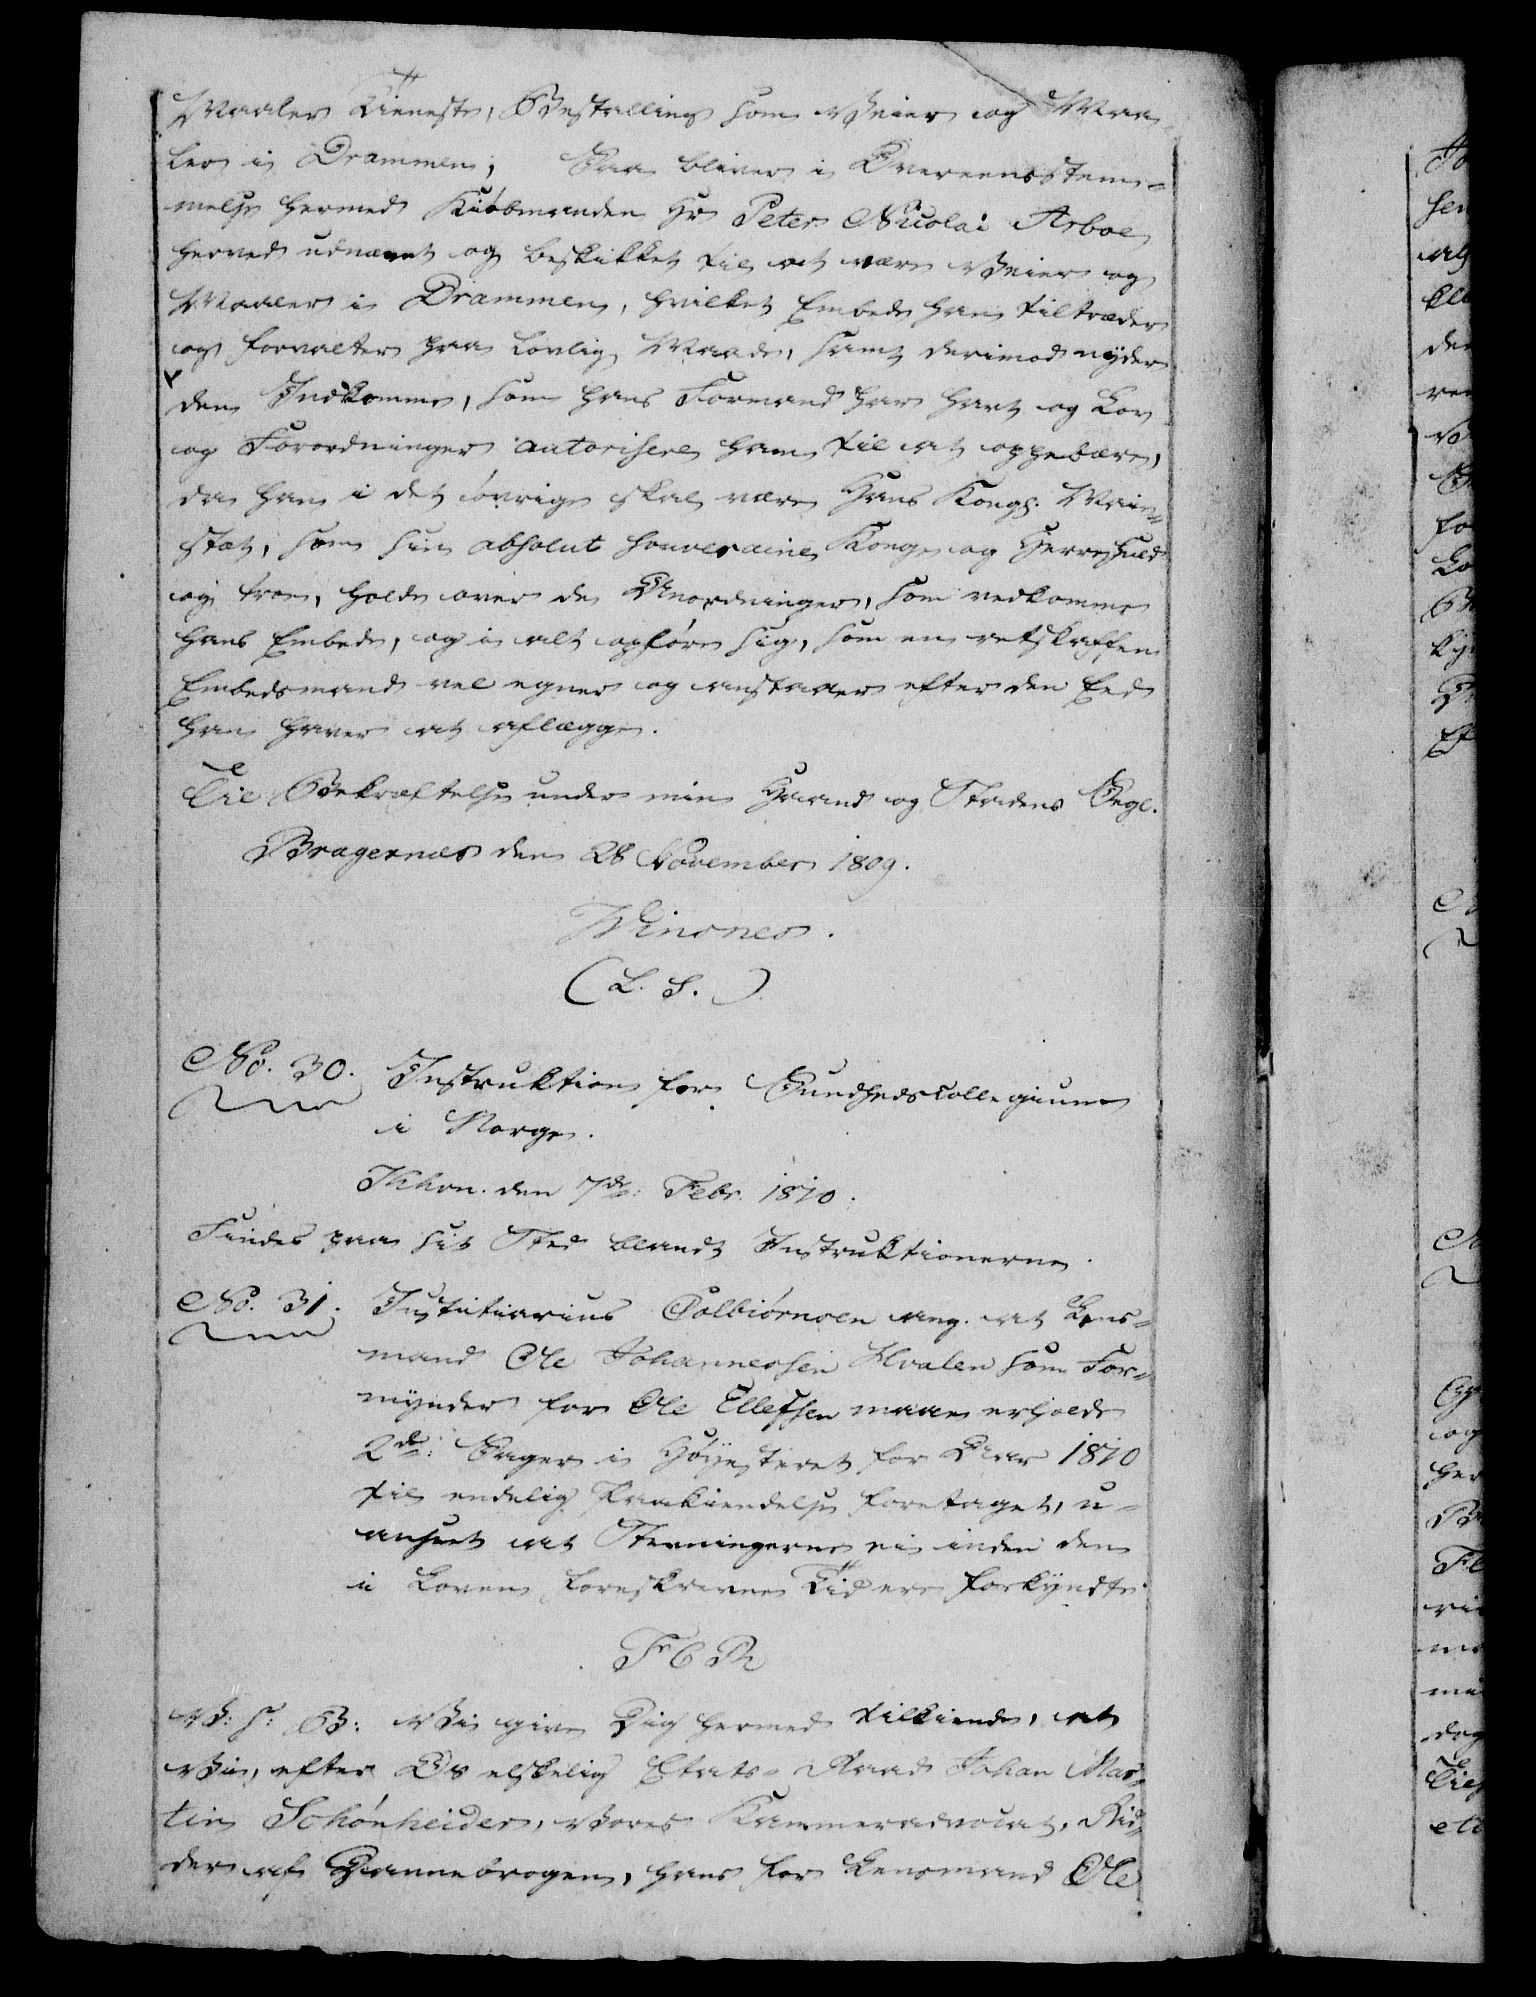 Maaler Tieneste, Bestalling som Veier og Maa-
ler i Drammen; Saa bliver i Overeensstem-
melse hermed Kiöbmanden Hr Peter Nicolai Arboe
herved udnævnt og beskikket til at være Veier og
Maaler i Drammen, hvilket Embede han tiltræder
og forvalter paa lovlig Maade, samt derimod nyder
den Indkomme, som hans Formand har havt og Lov
og Forordninger autorisere ham til at oppebære,
da han i det övrige skal være Hans Kongl. Maie-
stæt, som sin absolut souveraine Konge og Herre huld
og troe, holde over de Anordninger, som vedkomme
hans Embede, og i alt opföre sig, som en retskaffen
Embedsmand vel egner og anstaaer efter den Eed
han haver at aflægge.
Til Bekræftelse under min Haand og Stadens Segl.
Bragernæs den 28 November 1809.
Winsnes.
(L. S.)
No. 30. Instruktion for Sundhedscollegium
i Norge.
Khvn. den 7de: Febr. 1810.
Findes paa sit Sted blandt Instruktionerne.
No. 31. Justitiarius Colbiörnsen ang. at Lens-
mand Ole Johannessen Hvalen som For-
mynder for Ole Ellefsen maae erholde
2de: Sager i Höiesteret for Aar 1810
til endelig Paakiendelse foretaget, u-
anseet at Stevningerne ei inden den
i Loven foreskrevne Tid ere forkyndte.
F 6 R
V: s: G: Vi give Dig hermed tilkiende, at
Vi, efter Os elskelig Etats-Raad Johan Mar-
tin Schönheider, Vores Kammeradvocat, Rid-
der af Dannebrogen, hans for Lensmand Ole